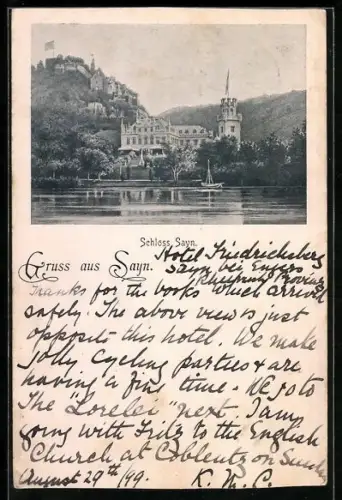 Schloss Sayn.
Gruss aus Sayn.
Hotel Friedrichsberg
Sayn bei Engers
Rheinprovinz
Thanks for the books which arrived
safely. The above view is just
opposite this hotel. We make
jolly cycling parties & are
having a fine time. We go to
The "Lorelei" next. I am
going with Fritz to the English
Church at Coblentz on Sunday
August 29th/99. K. M. C.